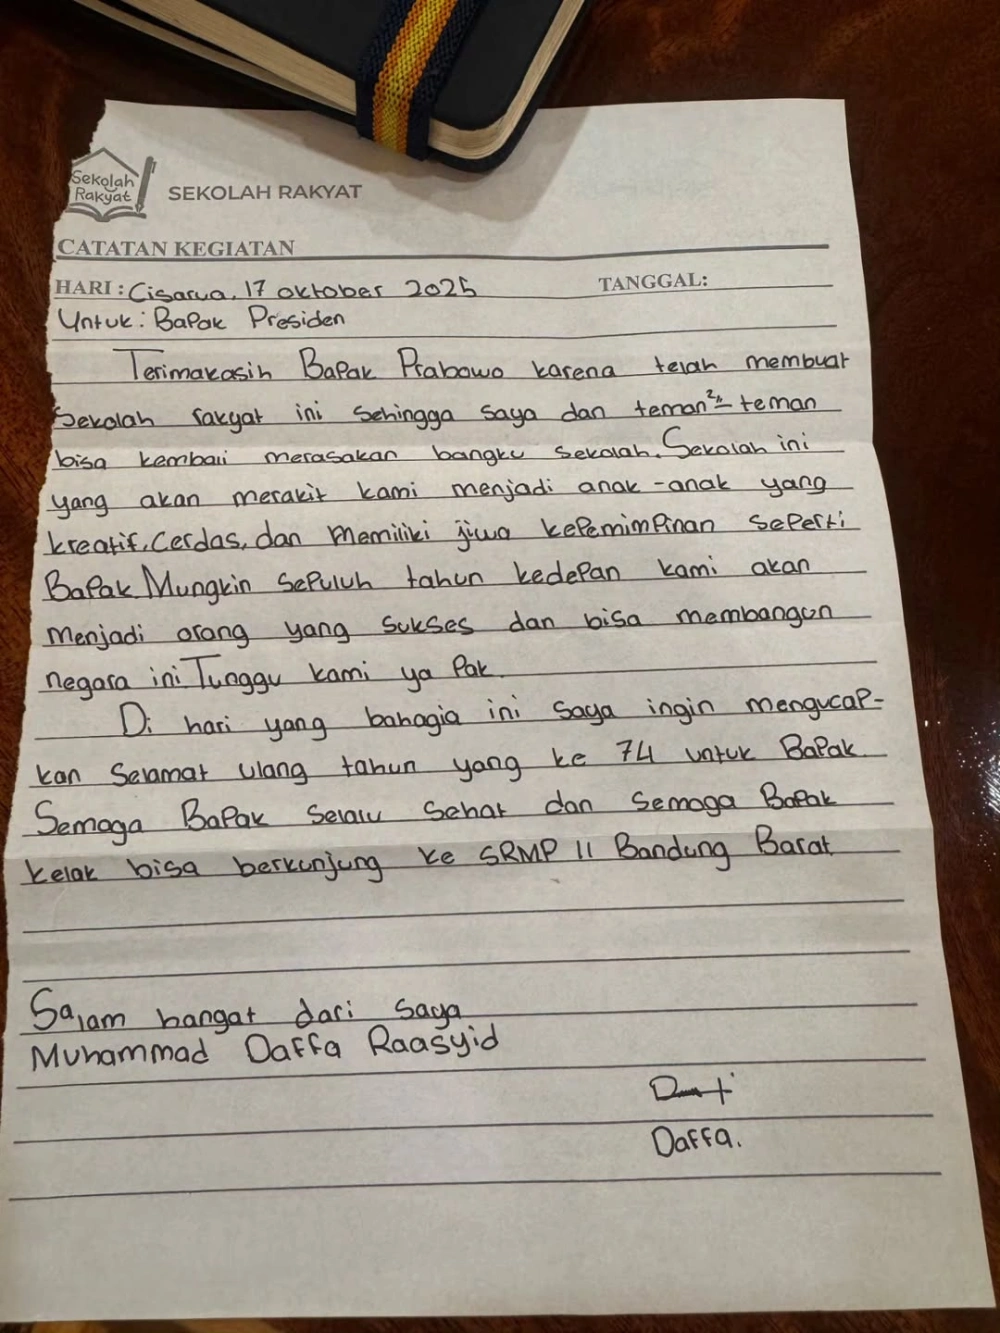 Sekolah
Rakyat
SEKOLAH RAKYAT
CATATAN KEGIATAN
HARI: Cisarua, 17 oktober 2025 TANGGAL:
Untuk: Bapak Presiden
Terimakasih Bapak Prabowo karena telah membuat
Sekolah rakyat ini sehingga saya dan teman²-teman
bisa kembali merasakan bangku sekolah. Sekolah ini
yang akan merakit kami menjadi anak-anak yang
kreatif, cerdas, dan memiliki jiwa kepemimpinan seperti
Bapak Mungkin sepuluh tahun kedepan kami akan
menjadi orang yang sukses dan bisa membangun
negara ini. Tunggu kami ya Pak.
Di hari yang bahagia ini saya ingin mengucap-
kan selamat ulang tahun yang ke 74 untuk Bapak
Semoga Bapak selalu sehat dan semoga Bapak
kelak bisa berkunjung ke SRMP 11 Bandung Barat
Salam hangat dari saya
Muhammad Daffa Raasyid
Daffa.